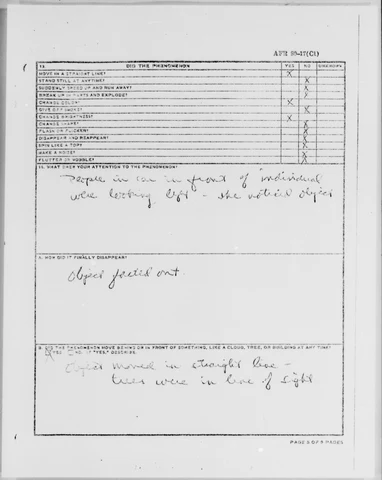 AFR 80-17(C1)
12. DID THE PHENOMENON YES NO UNKNOWN
MOVE IN A STRAIGHT LINE? X
STAND STILL AT ANYTIME? X
SUDDENLY SPEED UP AND RUN AWAY? X
BREAK UP IN PARTS AND EXPLODE? X
CHANGE COLOR? X
GIVE OFF SMOKE? X
CHANGE BRIGHTNESS? X
CHANGE SHAPE? X
FLASH OR FLICKER? X
DISAPPEAR AND REAPPEAR? X
SPIN LIKE A TOP? X
MAKE A NOISE? X
FLUTTER OR WOBBLE? X
WHAT DREW YOUR ATTENTION TO THE PHENOMENON?
People in car in front of individual
were looking left - she noticed object
A. HOW DID IT FINALLY DISAPPEAR?
Object faded out.
B. DID THE PHENOMENON MOVE BEHIND OR IN FRONT OF SOMETHING, LIKE A CLOUD, TREE, OR BUILDING AT ANY TIME?
YES NO. IF "YES," DESCRIBE.
Object moved in straight line -
trees were in line of sight
PAGE 5 OF 7 PAGES